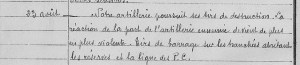 23 août Notre artillerie poursuit ses tirs de destruction. La
réaction de la part de l'artillerie ennemie devient de plus
en plus violente. Tirs de barrage sur les tranchées abritant
les réserves et la ligne des P.P.